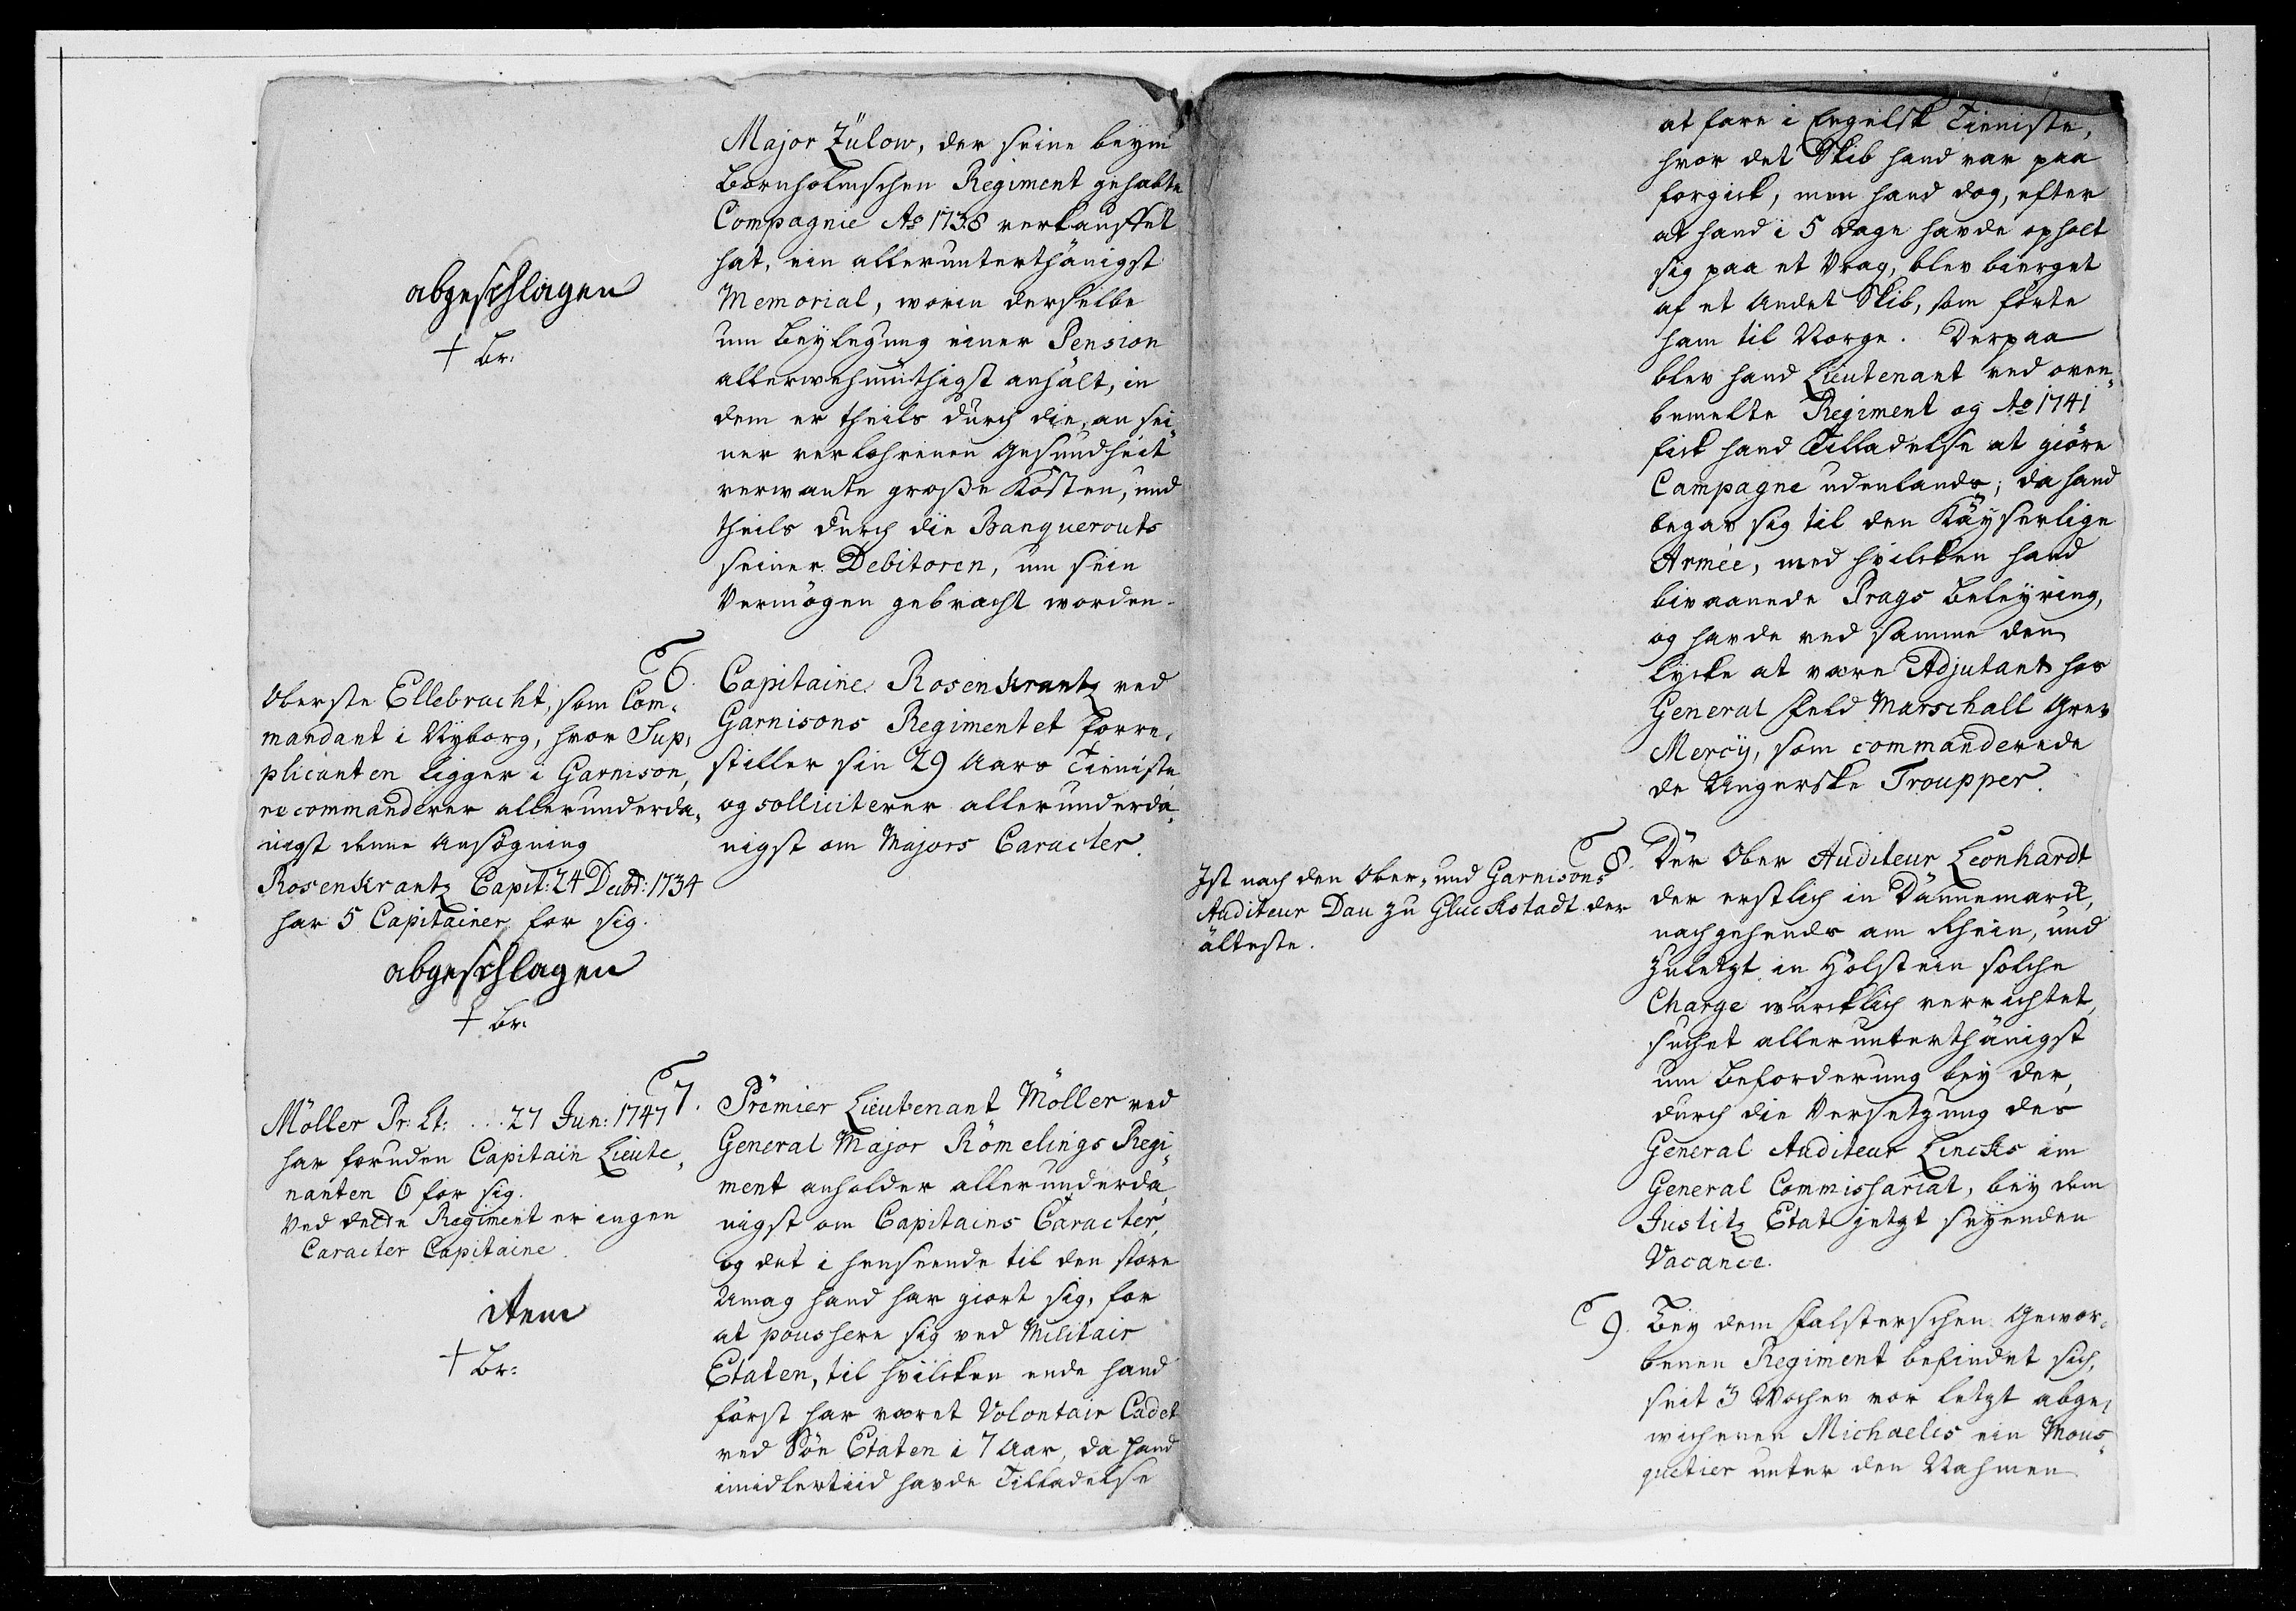 Major Zülow, der seine beym
Bornholmschen Regiment gehabte
Compagnie Ao 1738 verkauffet
hat, ein allerunterthänigst
Memorial, worin derselbe
um Beylegung einer Pension
allerwehmüthigst anhält, in
dem er theils durch die, an sei„
ner verlohrenen Gesundheit
verwante große Kosten, und
theils durch die Banquerouts
seiner Debitoren, um sein
Vermögen gebracht worden.
abgeschlagen
+ Br:
6. Capitaine Rosenkrantz ved
Garnisons Regimentet forre„
stiller sin 29 Aars Tieniste,
og solliciterer allerunderda„
nigst om Majors Caracter.
Oberste Ellebracht, som Com„
mandant i Nyborg, hvor Sup„
plicanten ligger i Garnison,
recommanderer allerunderda„
nigst denne Ansögning
Rosenkrantz Capit: 24 Decbr: 1734
har 5 Capitainer for sig.
abgeschlagen
+ Br:
7. Premier Lieutenant Möller ved
General Major Römelings Regi„
ment anholder allerunderda„
nigst om Capitains Caracter,
og det i henseende til den store
Umag hand har giort sig, for
at poussere sig ved Militair
Etaten, til hvilcken ende hand
först har været Volontair Cadet
ved Söe Etaten i 7 Aar, da hand
imidlertiid havde Tilladelse
Möller Pr: Lt: ... 27 Jun: 1747
har foruden Capitain Lieute„
nanten 6 for sig.
Ved dette Regiment er ingen
Caracter Capitaine.
item
+ Br:
at fare i Engelsk Tieniste,
hvor det Skib hand var paa
forgick, men hand dog, efter
at hand i 5 dage havde opholt
sig paa et Vrag, blev bierget
af et Andet Skib, som förte
ham til Norge. Derpaa
blev hand Lieutenant ved oven„
bemelte Regiment og Ao 1741
fick hand Tilladelse at giöre
Campagne udenlands; da hand
begav sig til den Käyserlige
Armée, med hvilcken hand
bivaanede Prags Beleyring,
og havde ved samme den
Lycke at være Adjutant hos
General Feld Marschall Grev
Mercÿ, som commanderede
de Ungerske Troupper.
8. Der Ober Auditeur Leonhardt
der erstlich in Dännemarck,
nachgehends am Rhein, und
zuletzt in Holstein solche
Charge würcklich verrichtet,
suchet allerunterthänigst
um Beforderung bey der,
durch die Versetzung des
General Auditeur Lincks im
General Commissariat, bey dem
Justitz Etat jetzt seyenden
Vacance.
Ist nach den Ober„ und Garnisons
Auditeur Dau zu Gluckstadt der
älteste.
9. Bey dem Falsterschen Gewor„
benen Regiment befindet sich,
seit 3 Wochen vor letzt abge„
wichenen Michaelis ein Mous„
quetier unter den Nahmen